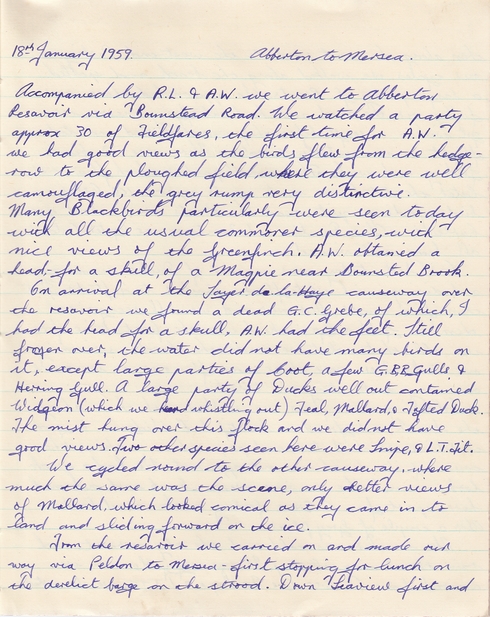 18th January 1959. Abberton to Mersea.
Accompanied by R.L. & A.W. we went to Abberton
Resavoir via Bounstead Road. We watched a party
approx 30 of Fieldfares, the first time for A.W.
we had good views as the birds flew from the hedge-
row to the ploughed field where they were well
camouflaged, the grey rump very distinctive.
Many Blackbirds particularly were seen today
with all the usual commoner species, with
nice views of the Greenfinch. A.W. obtained a
head-for a skull, of a Magpie near Bounsted Brook.
On arrival at the Layer de-la-Haye causeway over
the resavoir we found a dead G.C. Grebe, of which, I
had the head for a skull, A.W. had the feet. Still
frozen over, the water did not have many birds on
it, except large parties of Coot, a few G.B.B. Gulls &
Herring Gull. A large party of Ducks well out contained
Widgeon (which we heard whistling out) Teal, Mallard, & Tufted Duck.
The mist hung over this flock and we did not have
good views. Two other species seen here were Snipe, & L.T. Tit.
We cycled round to the other causeway, where
much the same was the scene, only better views
of Mallard, which looked comical as they came in to
land and sliding forward on the ice.
From the resavoir we carried on and made our
way via Peldon to Mersea - first stopping for lunch on
the derelict barge on the strood. Down Seaview first and